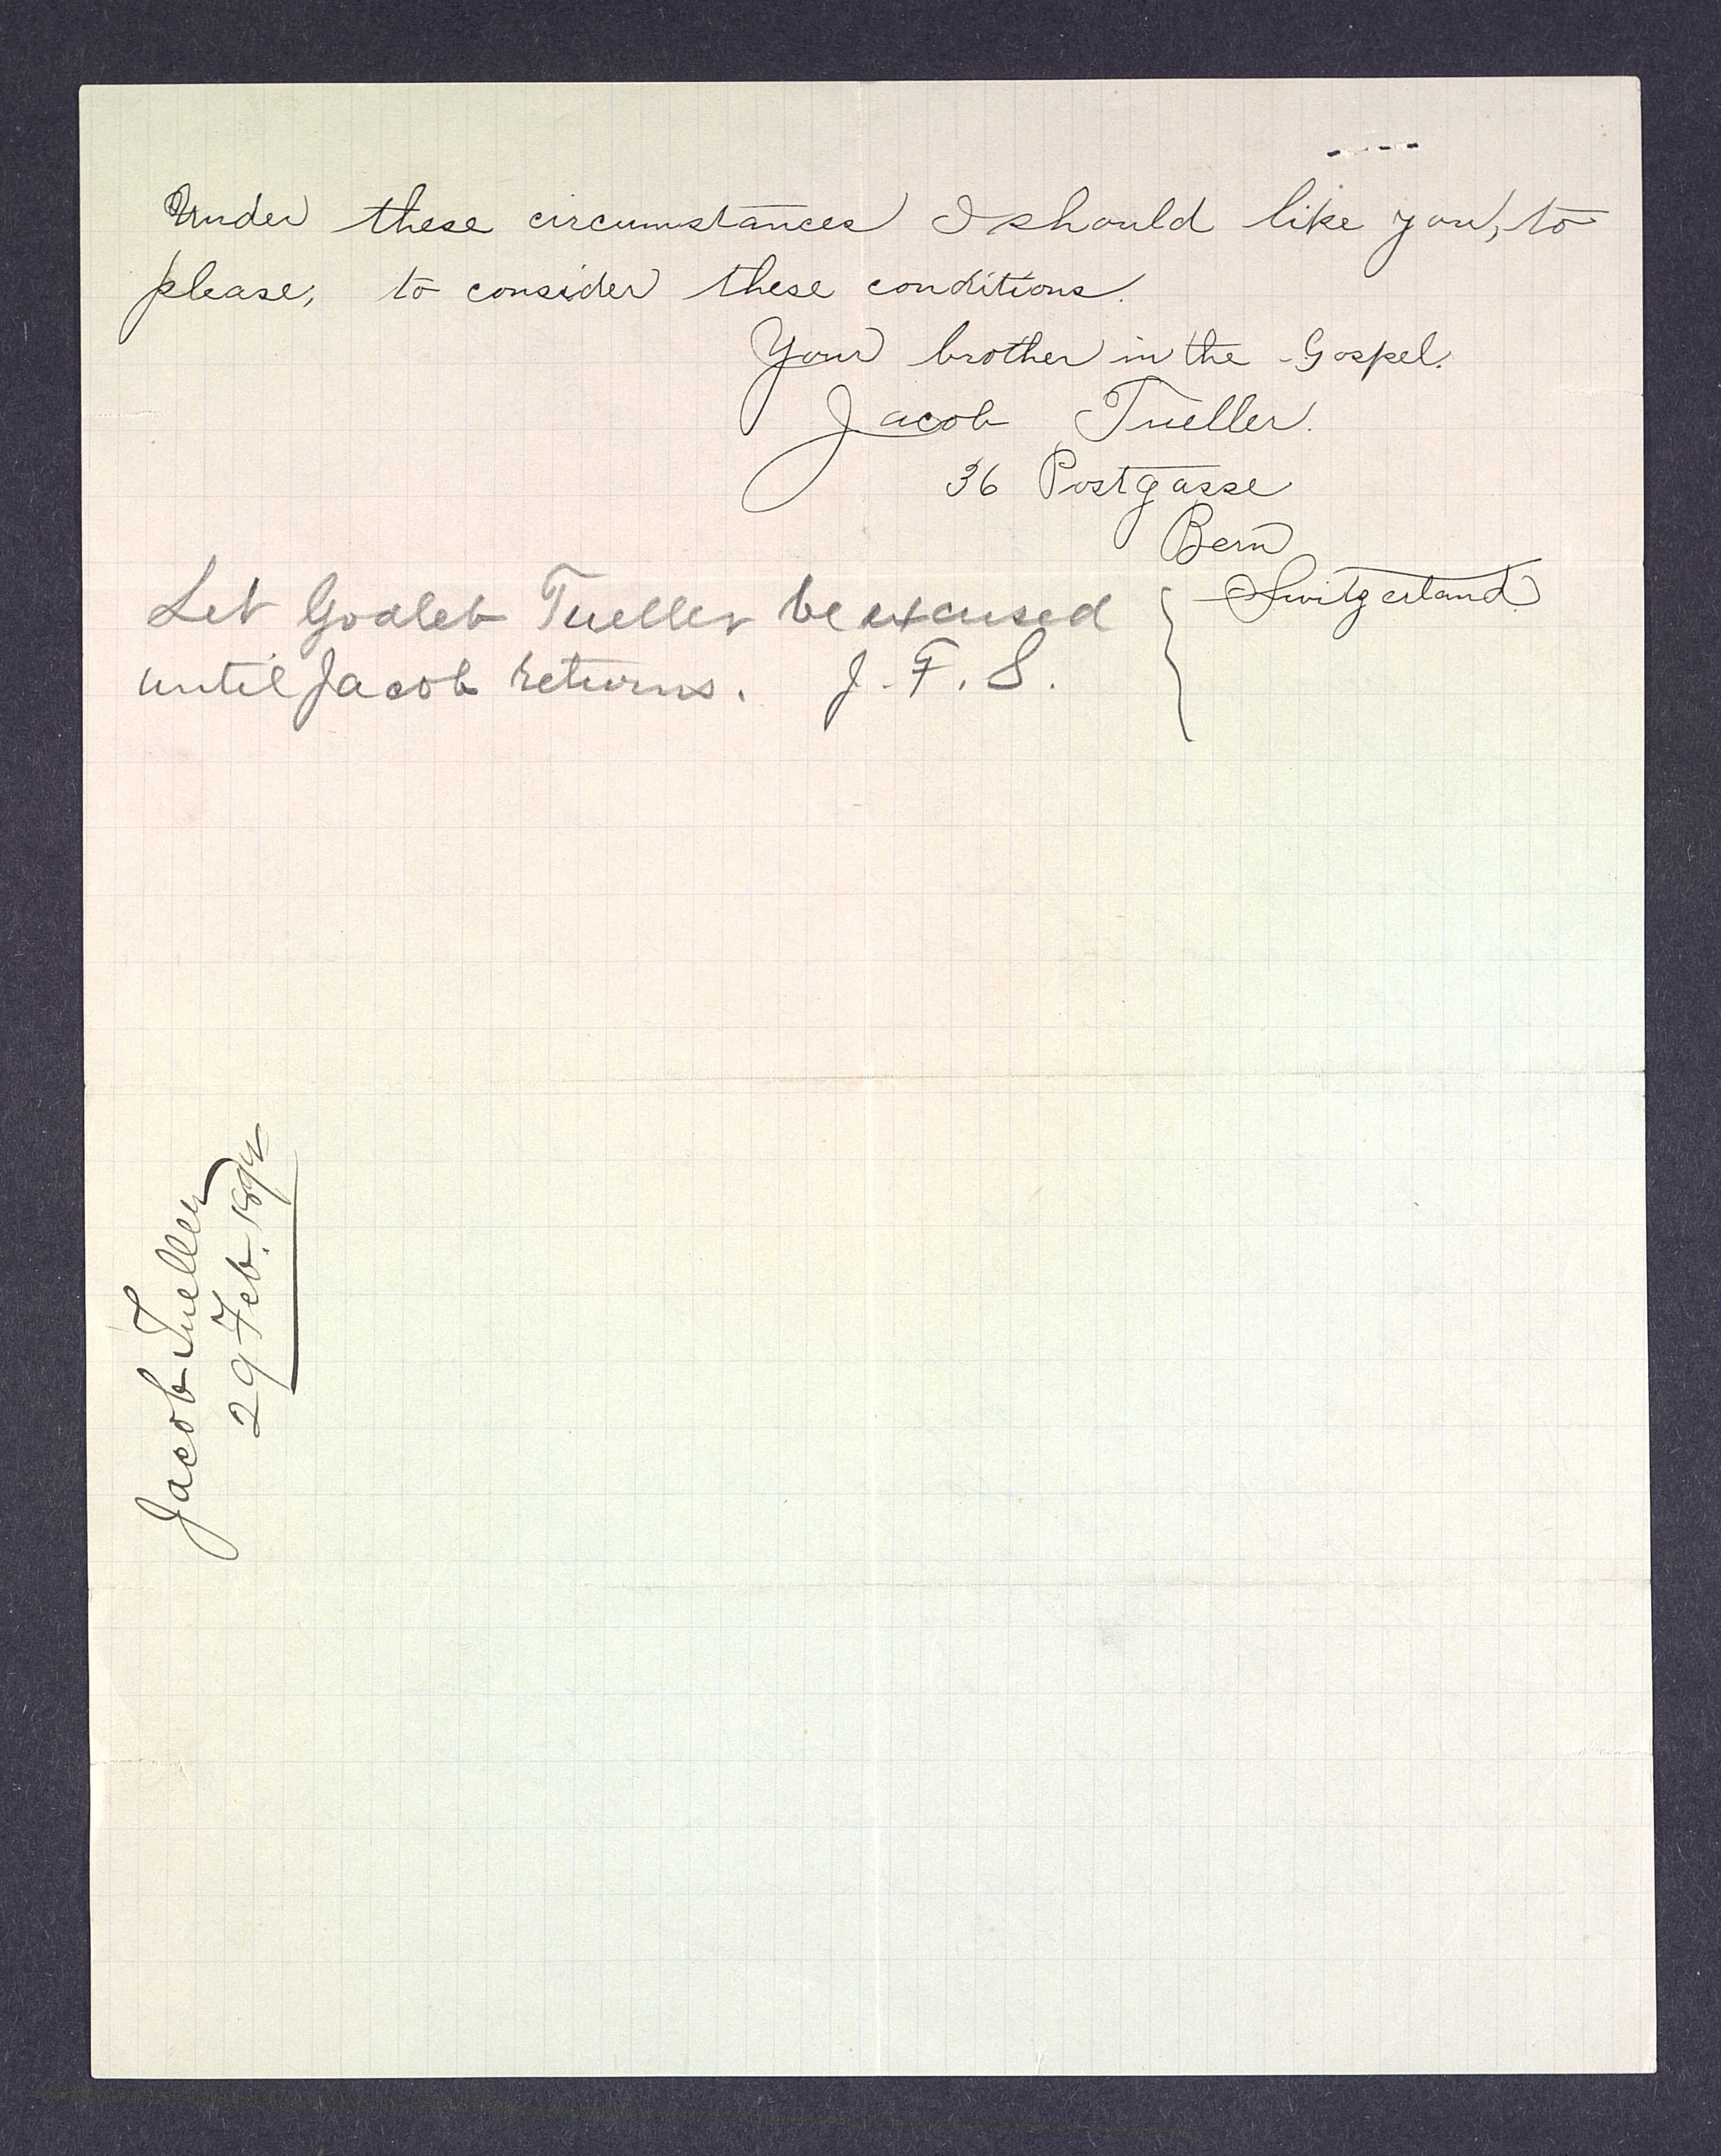 Under these circumstances I should like you, to
please, to consider these conditions.
Your brother in the Gospel.
Jacob Tueller.
36 Postgasse
Bern
Switzerland.
Let Godleb Tueller be excused
until Jacob returns. J. F. S.
Jacob Tueller
29 Feb.